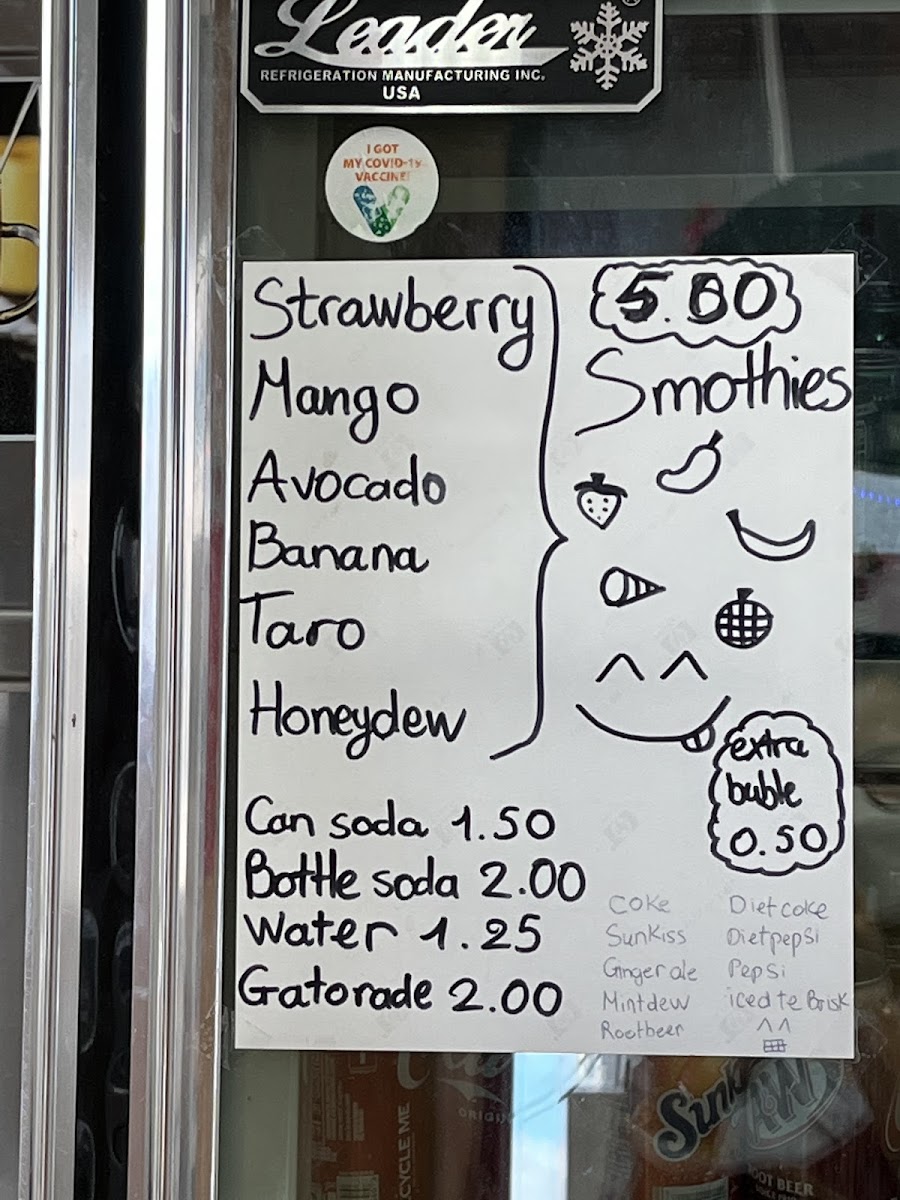 Leader
REFRIGERATION MANUFACTURING INC.
USA
I GOT
MY COVID-19
VACCINE!
Strawberry
Mango
Avocado
Banana
Taro
Honeydew
5.00
Smothies
extra
buble
0.50
Can soda 1.50
Bottle soda 2.00
Water 1.25
Gatorade 2.00
Coke
SunKiss
Ginger ale
Mintdew
Rootbeer
Diet coke
Dietpepsi
Pepsi
iced te Brisk
CYCLE ME
ORIGI
Sunk
A&W
OOT BEER